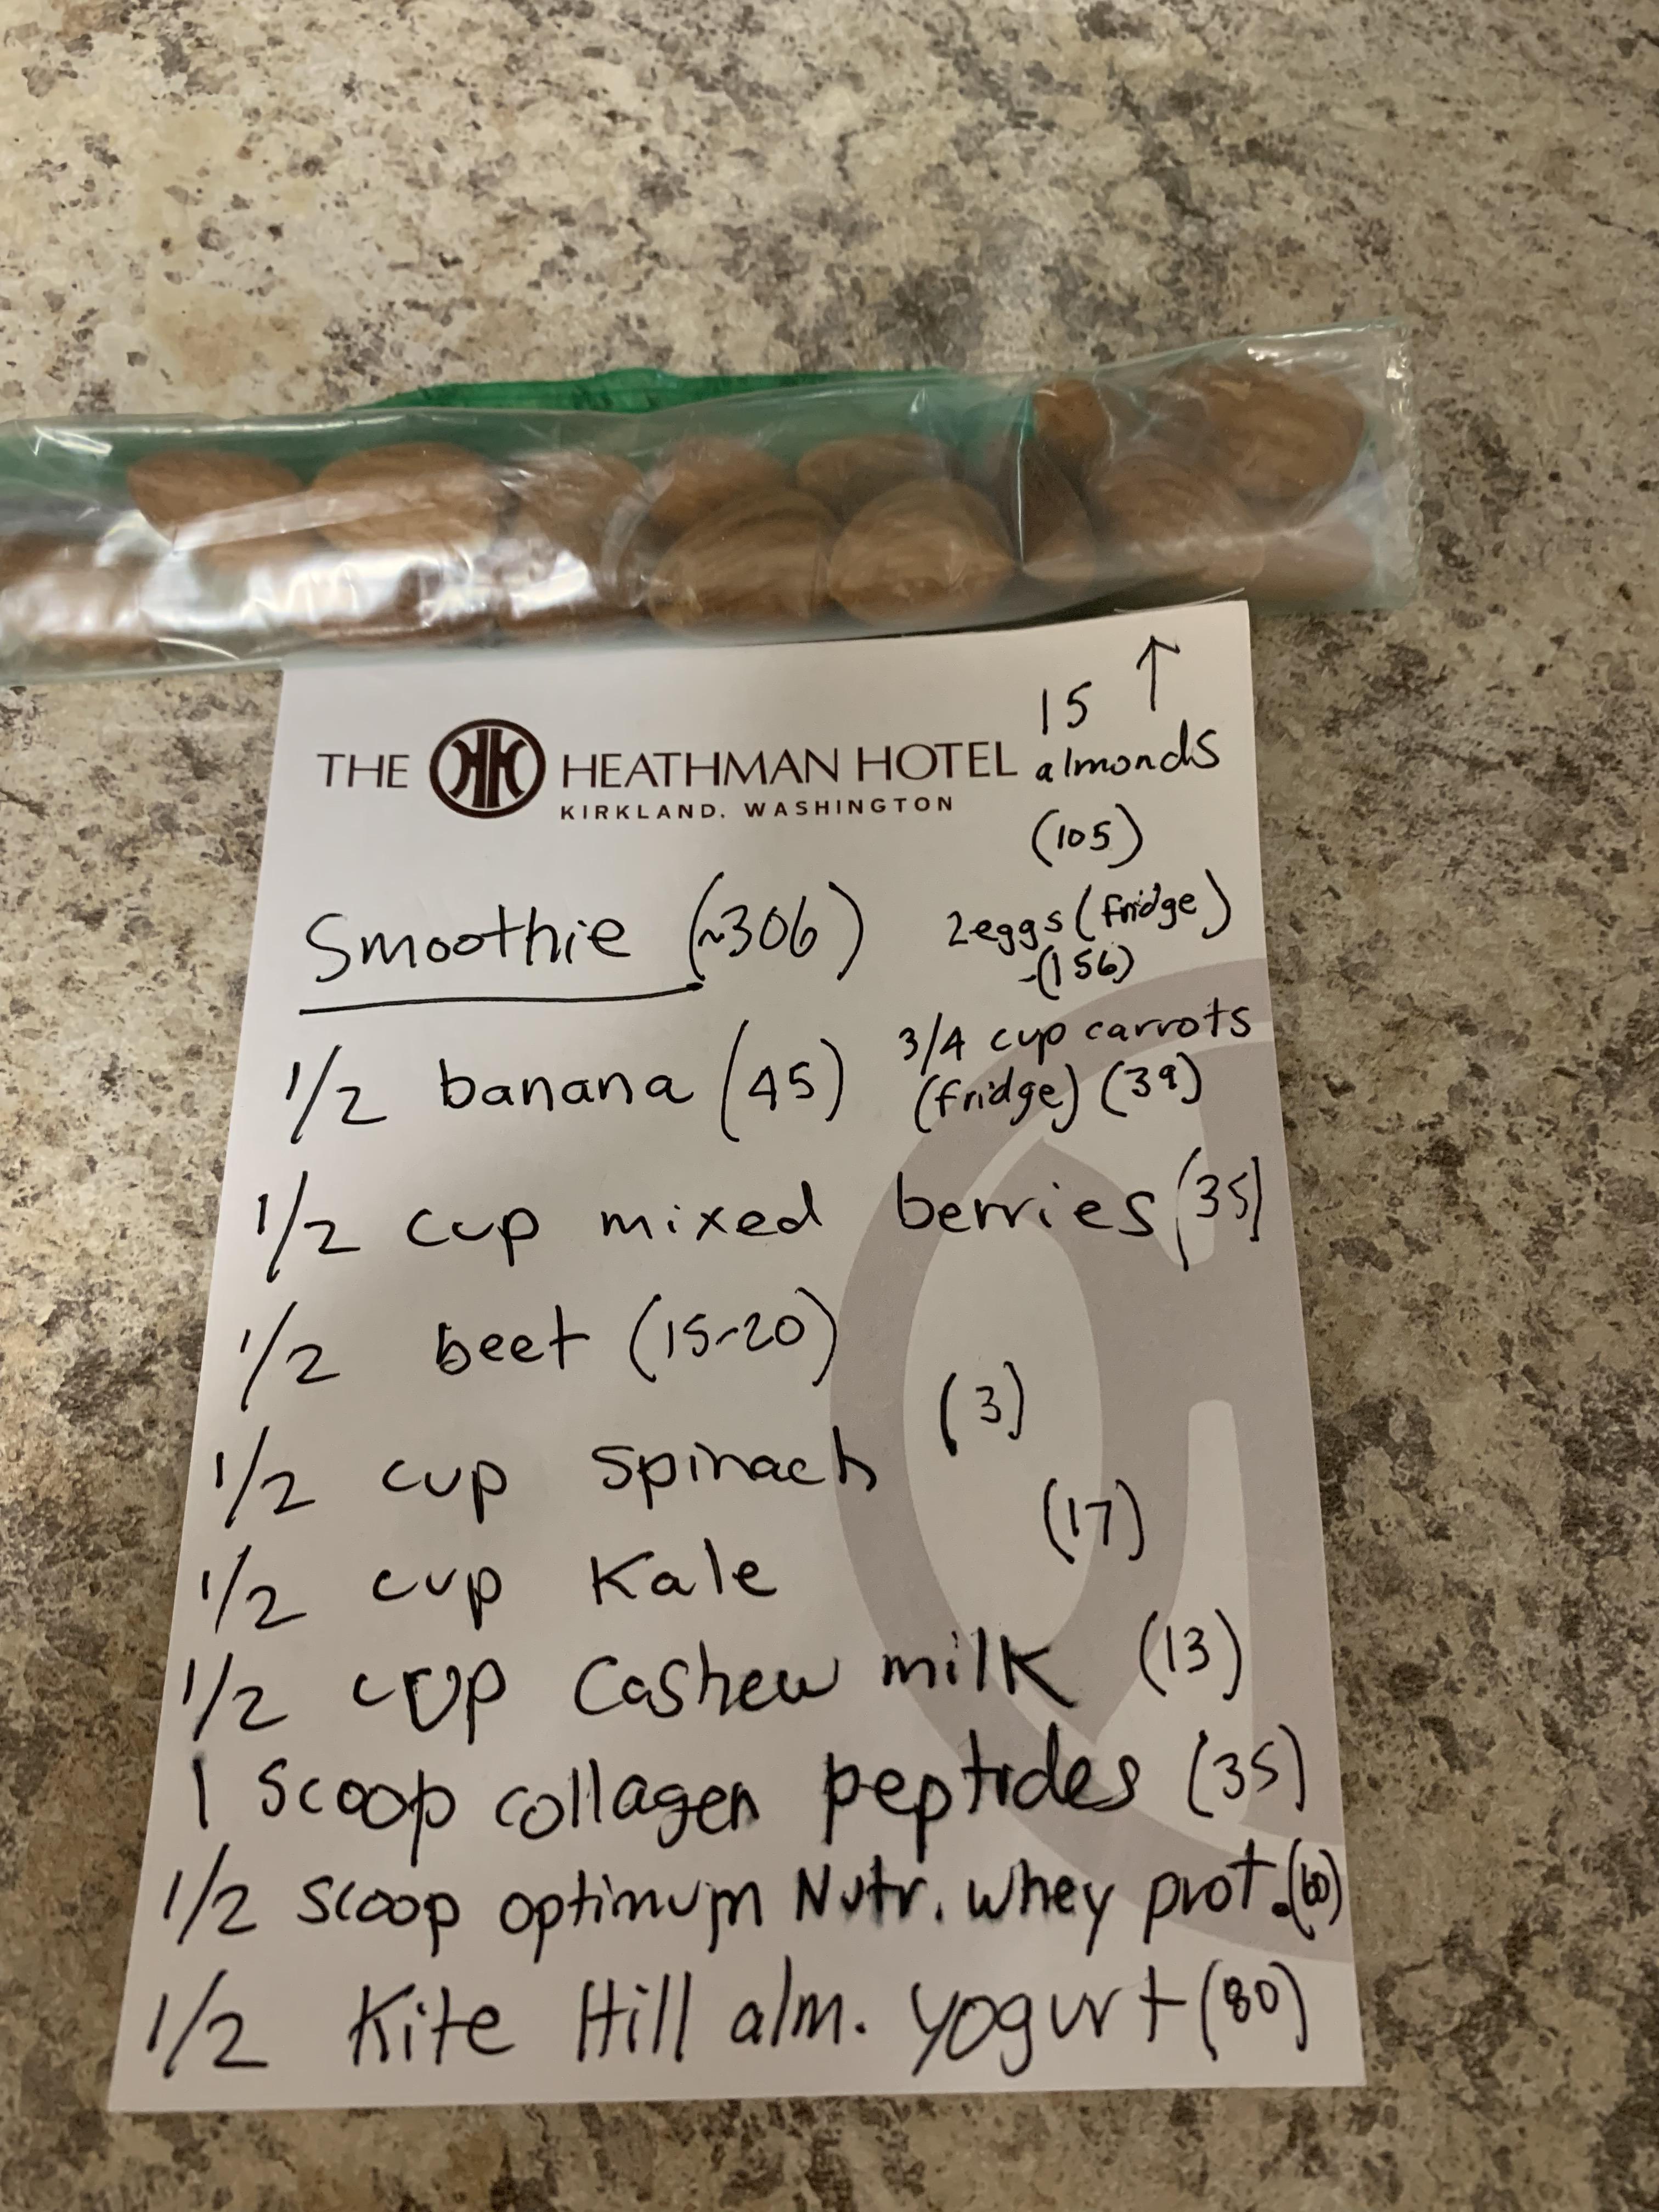 15 ↑
almonds
THE HEATHMAN HOTEL
KIRKLAND, WASHINGTON
(105)
Smoothie (~306)
2 eggs (fridge)
-(156)
3/4 cup carrots
(fridge) (39)
1/2 banana (45)
1/2 cup mixed berries (35)
1/2 beet (15-20)
1/2 cup spinach (3)
1/2 cup Kale (17)
1/2 cup Cashew milk (13)
1 Scoop collagen peptides (35)
1/2 scoop optimum Nutr. whey prot. (60)
1/2 Kite Hill alm. yogurt (80)